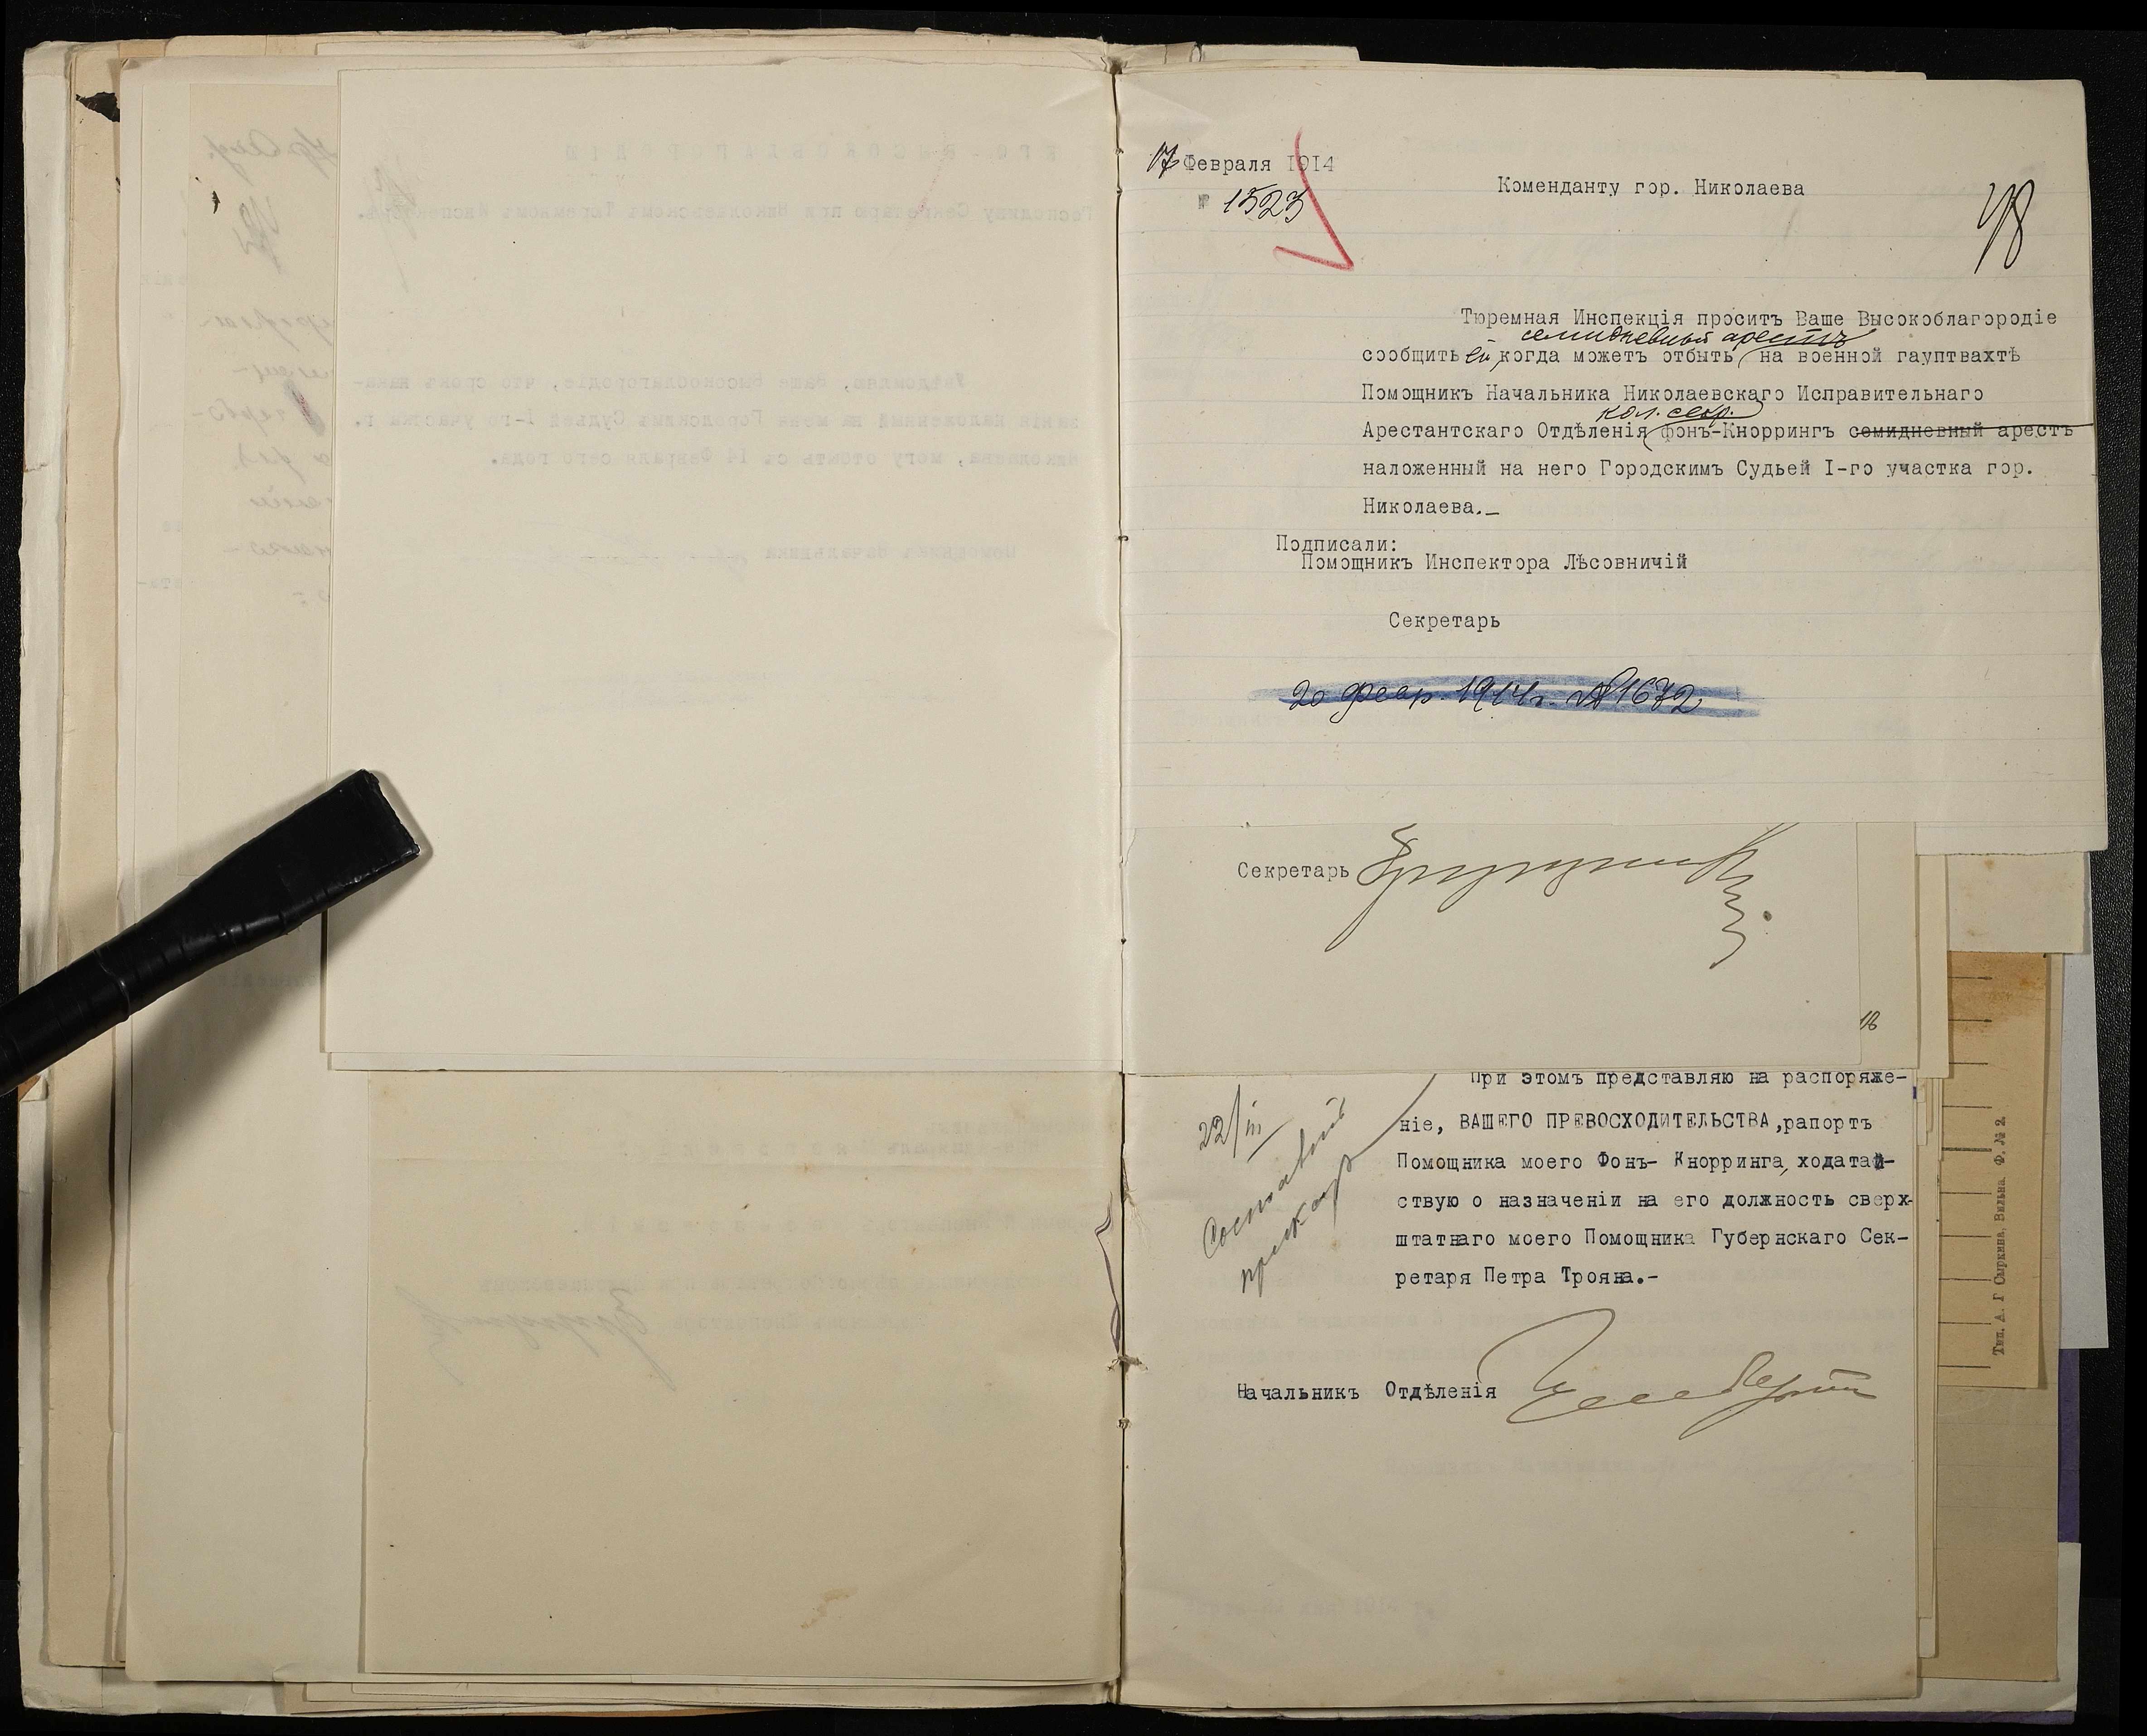 17 Февраля 1914
№ 1523
Коменданту гор. Николаева
Тюремная Инспекцiя проситъ Ваше Высокоблагородiе
семидневный арестъ
сообщить ей, когда можетъ отбыть на военной гауптвахтѣ
Помощникъ Начальника Николаевскаго Исправительнаго
кол. секр.
Арестантскаго Отдѣленiя фонъ-Кноррингъ семидневный арестъ
наложенный на него Городскимъ Судьей I-го участка гор.
Николаева.—
Подписали:
Помощникъ Инспектора Лѣсовничiй
Секретарь
20 февр. 1914 г. № 1672
Секретарь
18
22/III
Составить
приказъ
При этомъ представляю на распоряже-
нiе, ВАШЕГО ПРЕВОСХОДИТЕЛЬСТВА, рапортъ
Помощника моего Фонъ- Кнорринга, ходатай-
ствую о назначенiи на его должность сверх-
штатнаго моего Помощника Губернскаго Сек-
ретаря Петра Трояна.-
Начальникъ Отдѣленiя
Тип. А. Г Сыркина, Вильна. Ф. № 2